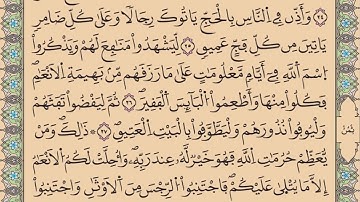 ٢٤ وَأَذِّن فِے اِ۬لنَّاسِ بِالْحَجِّ يَاتُوكَ رِجَالاٗ وَعَلَىٰ كُلِّ ضَامِرٖ
يَاتِينَ مِن كُلِّ فَجٍّ عَمِيقٖ ٢٥ لِّيَشْهَدُواْ مَنَٰفِعَ لَهُمْ وَيَذْكُرُواْ
اُ۪سْمَ اَ۬للَّهِ فِےٓ أَيَّامٖ مَّعْلُومَٰتٍ عَلَىٰ مَا رَزَقَهُم مِّنۢ بَهِيمَةِ اِ۬لَانْعَٰمِ
فَكُلُواْ مِنْهَا وَأَطْعِمُواْ اُ۬لْبَآيِسَ اَ۬لْفَقِيرَ ٢٦ ثُمَّ لِيَقْضُواْ تَفَثَهُمْ
وَلْيُوفُواْ نُذُورَهُمْ وَلْيَطَّوَّفُواْ بِالْبَيْتِ اِ۬لْعَتِيقِ ٢٧ ذَٰلِكَ وَمَنْ
يُّعَظِّمْ حُرُمَٰتِ اِ۬للَّهِ فَهُوَ خَيْرٞ لَّهُۥ عِندَ رَبِّهِۦ وَأُحِلَّتْ لَكُمُ اُ۬لَانْعَٰمُ
إِلَّا مَا يُتْلَىٰ عَلَيْكُمْ فَاجْتَنِبُواْ اُ۬لرِّجْسَ مِنَ اَ۬لَاوْثَٰنِ وَاجْتَنِبُواْ